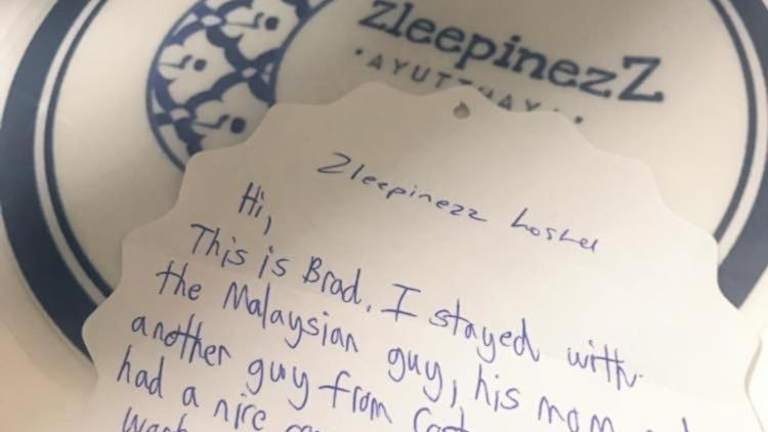 zleepinezZ
• AYUTTHAYA •
Zleepinezz hostel
Hi,
This is Brad. I stayed with
the Malaysian guy, his mom
another guy from
had a nice